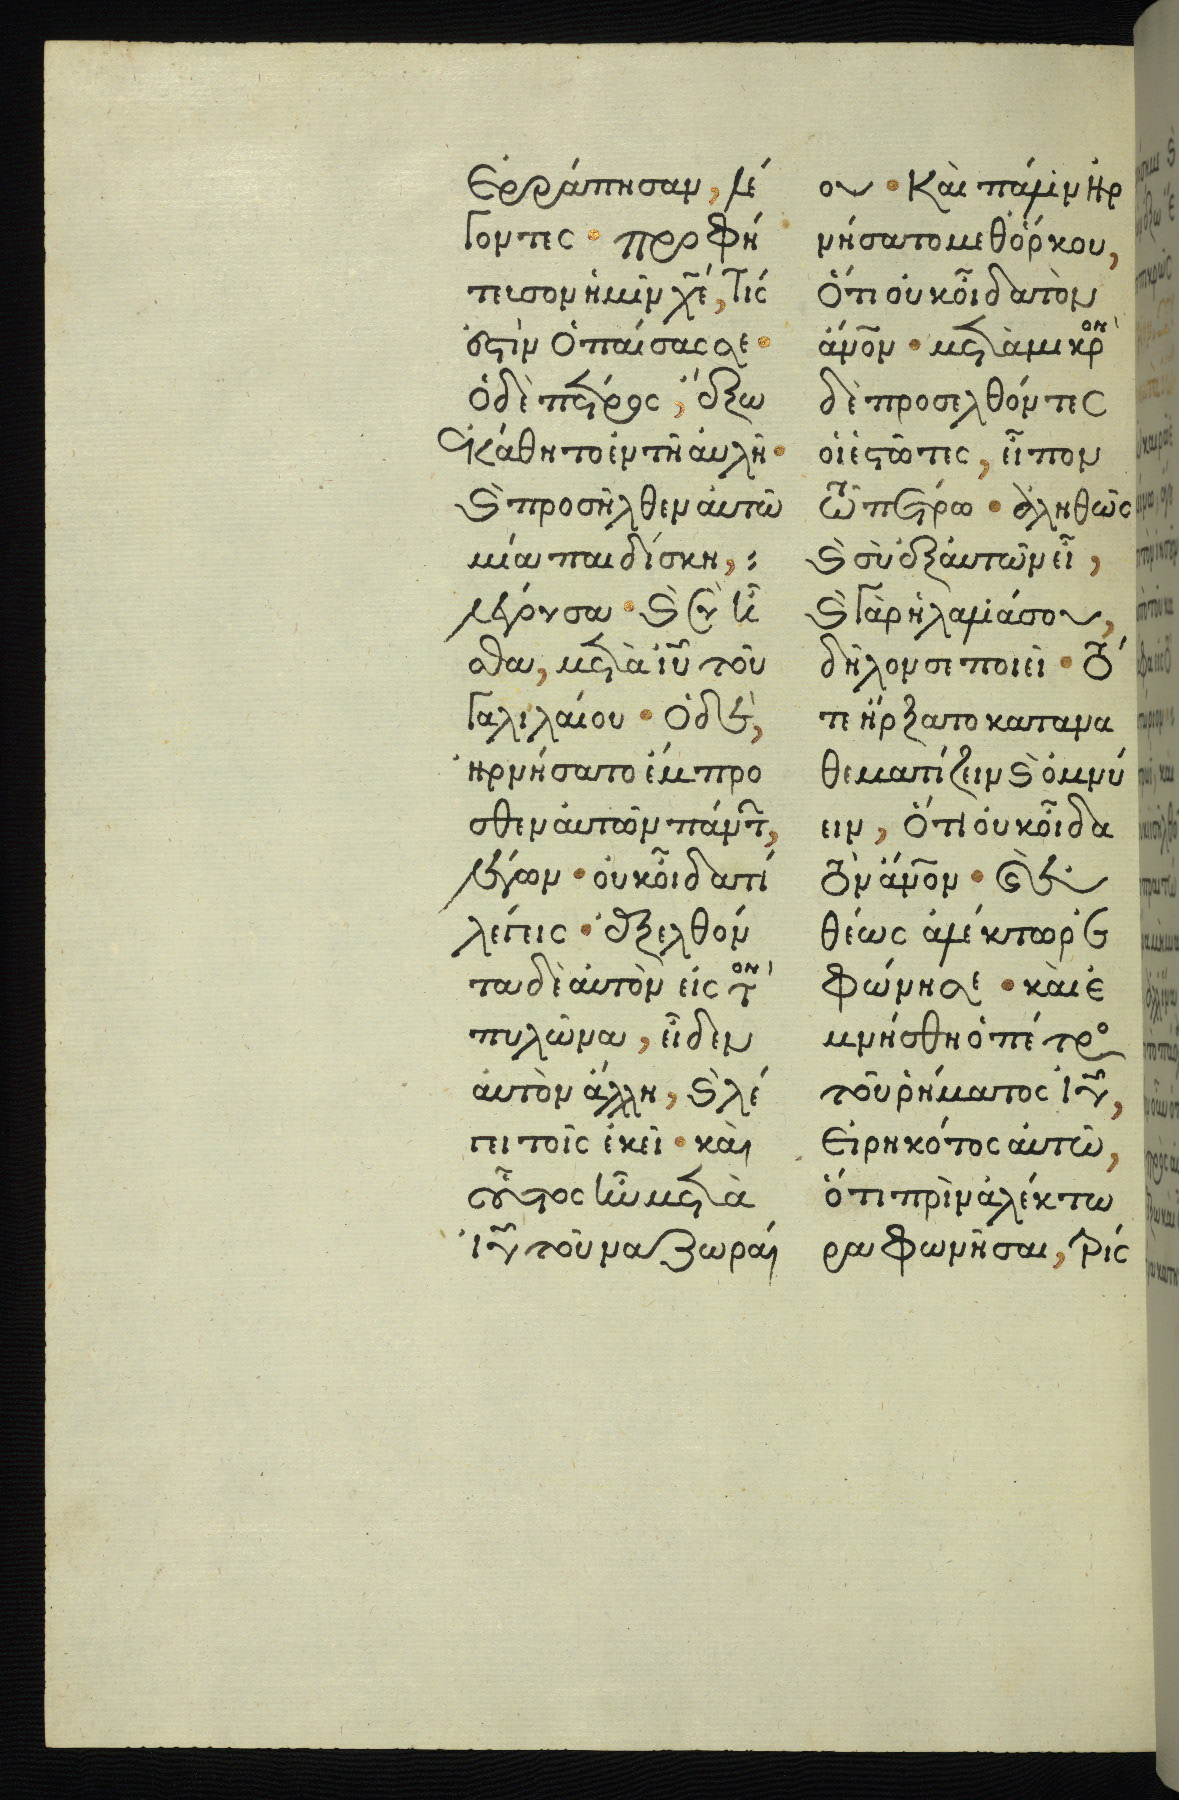 ἐρράπησαν, λέ
γοντες · προφή
τευσον ἡμῖν χε̅, τίς
ἐστὶν ὁ παίσας σε ·
ὁ δὲ πέτρος, ἔξω
ἐκάθητο ἐν τῆ αυλῆ ·
καὶ προσῆλθεν αὐτῶ
μία παιδίσκη,
λέγουσα · καὶ σὺ ἦ
σθα, μετὰ ιυ̅ τοῦ
γαλιλαίου · ὁ δὲ,
ἠρνήσατο ἔμπρο
σθεν αὐτῶν πάντ,
λέγων · οὐκ οἶδα τί
λέγεις · ἐξελθόν
τα δὲ αὐτὸν εἰς τὸν
πυλῶνα, εἶδεν
αὐτὸν ἄλλη, καὶ λέ
γει τοῖς ἐκεῖ · καὶ
οὗτος ἦν μετὰ
ιυ̅ τοῦ ναζωραί
ου · Καὶ πάλιν ἠρ
νήσατο μεθ ὅρκου,
ὅτι οὐκ οἶδα τὸν
ἄνον · μετὰ μικρὸν
δὲ προσελθόντες
οἱ ἑστῶτες, εἶπον
τῶ πέτρω · ἀληθῶς
καὶ σὺ ἐξ αὐτῶν εἶ,
καὶ γὰρ ἡ λαλιά σου,
δῆλόν σε ποιεῖ · τό
τε ἤρξατο καταναθεματίζειν
θεματίζειν καὶ ὀμνύ
ειν, ὅτι οὐκ οἶδα
τὸν ἄνον · καὶ εὐ
θέως ἀλέκτωρ ἐ
φώνησε · καὶ ἐ
μνήσθη ὁ πέτρο
τοῦ ῥήματος ιυ̅,
εἰρηκότος αὐτῶ,
ὅτι πρὶν ἀλέκτω
ρα φωνῆσαι, τρίς